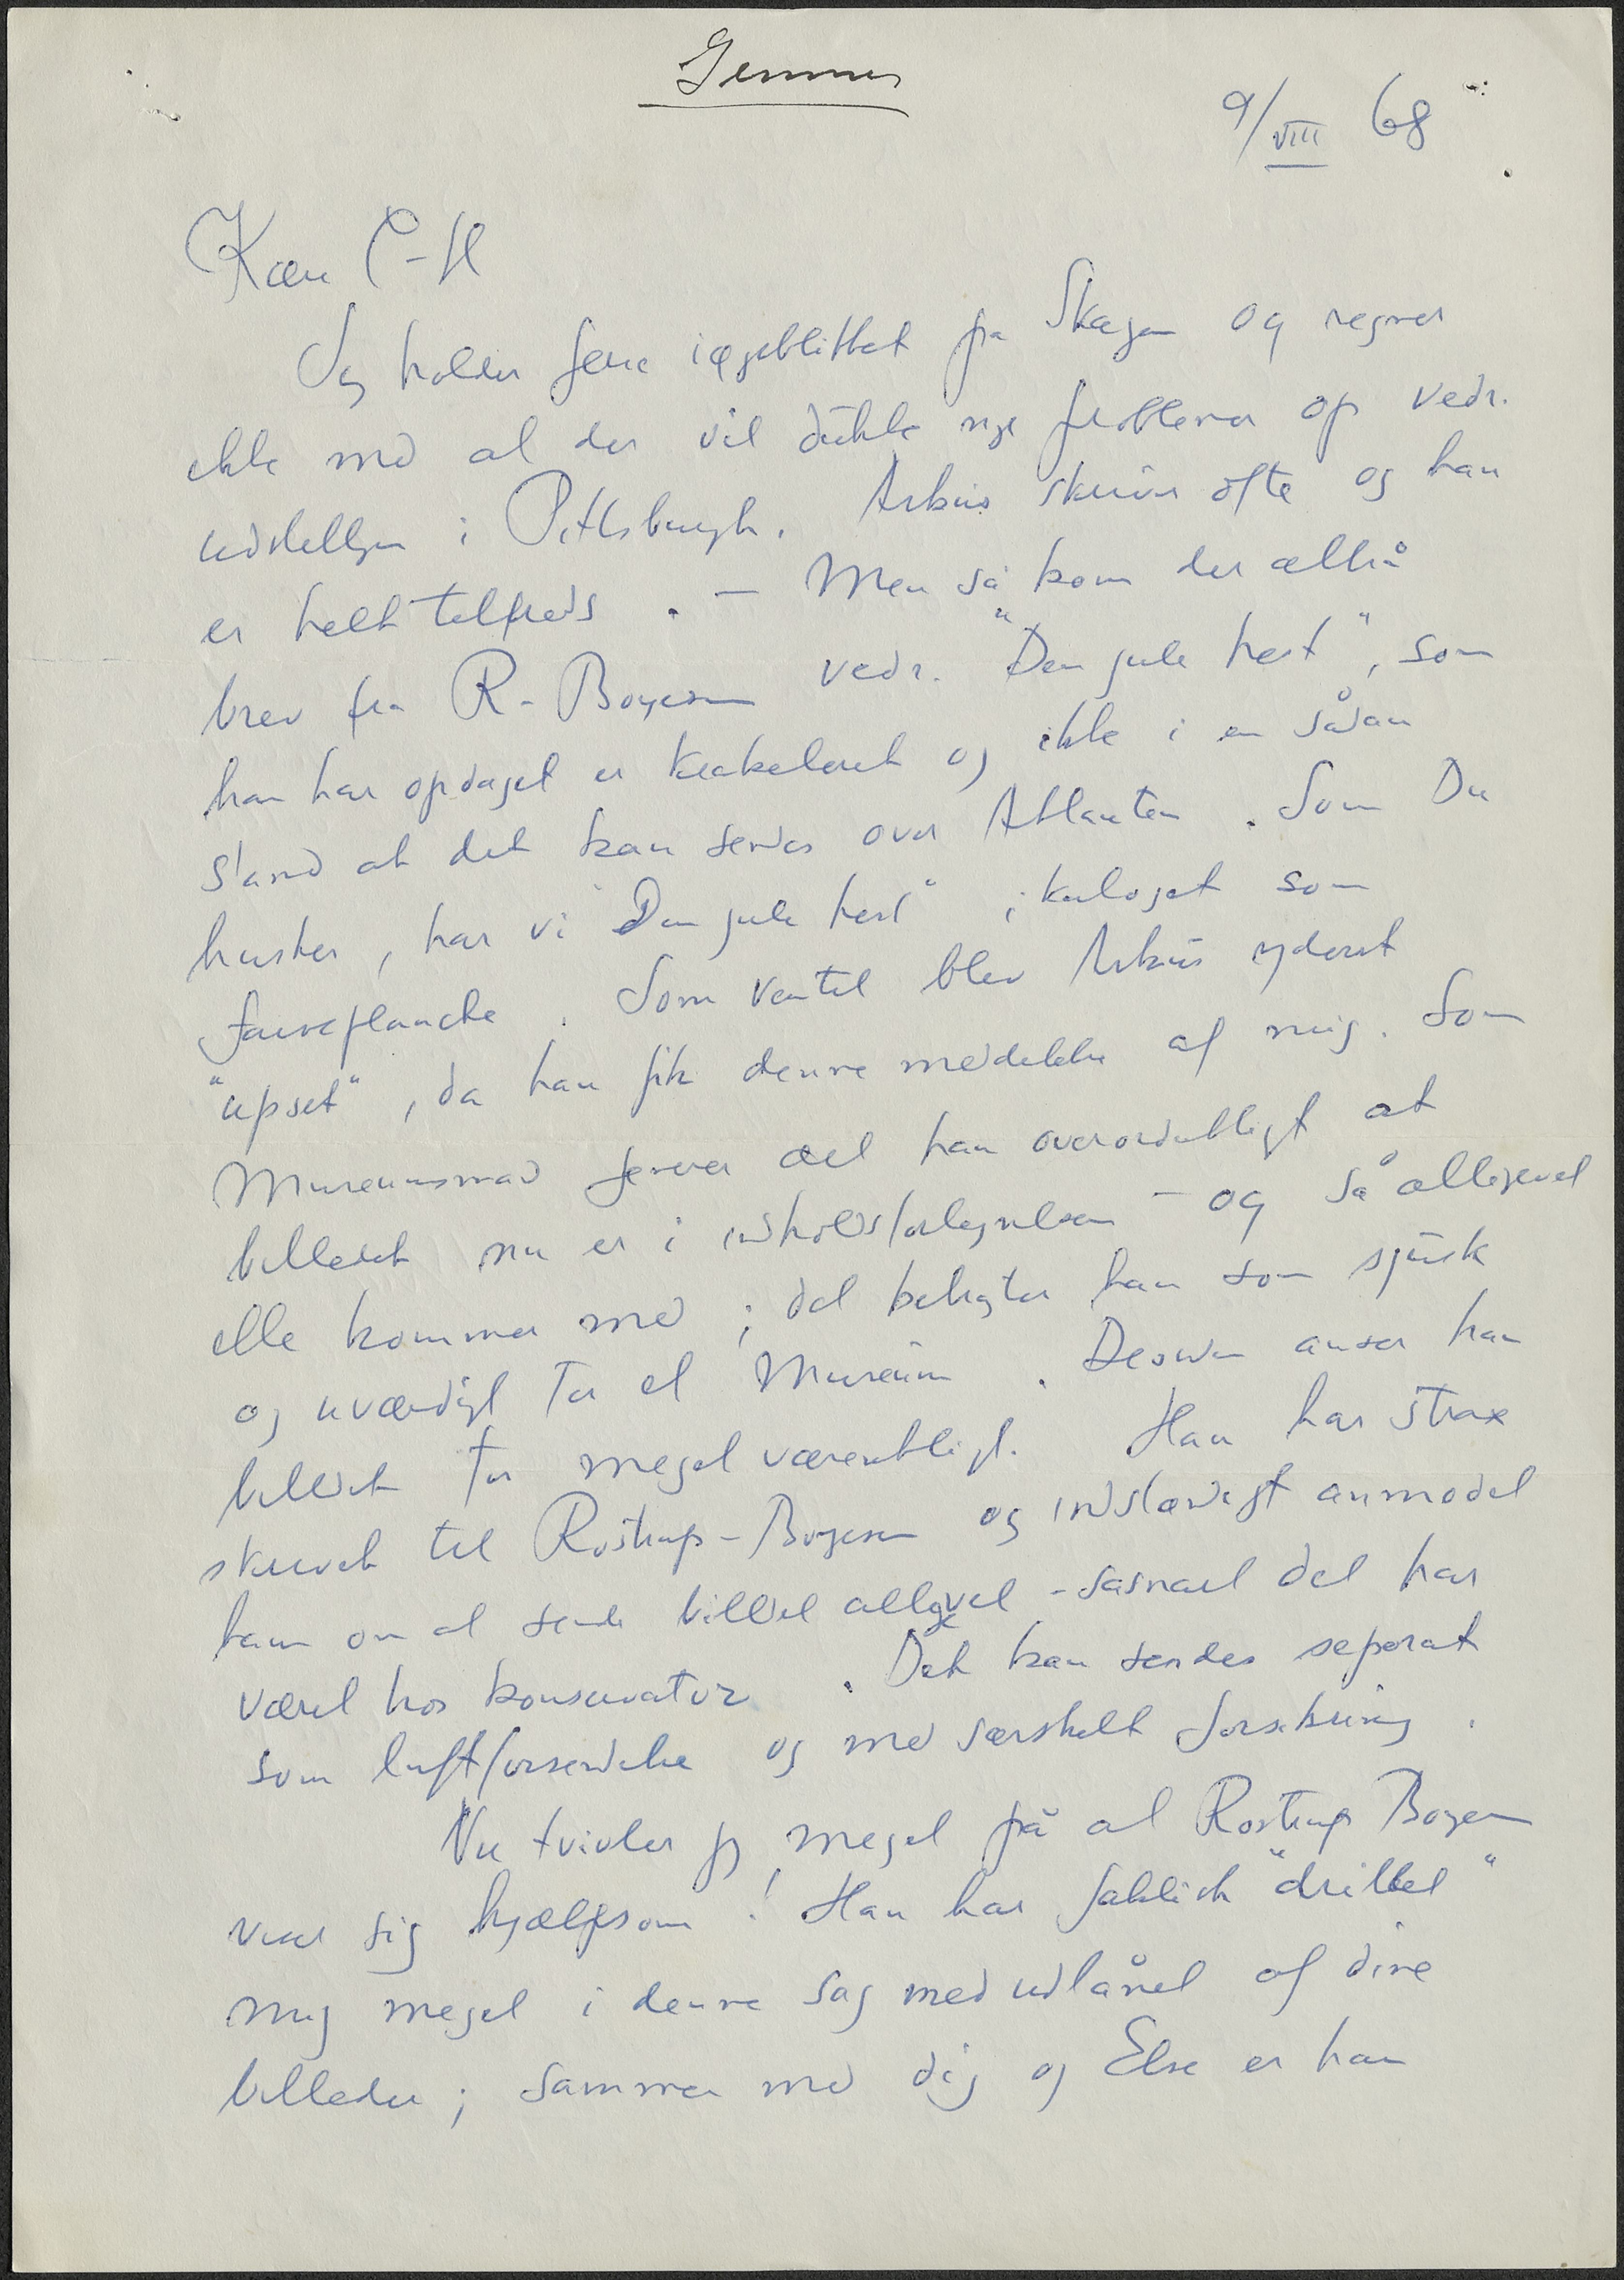 Gemmes
9/VIII 68
Kære C-H
Jeg holder ferie i øjeblikket på Skagen og regner
ikke med at der vil dukke nye problemer op vedr.
udstillingen i Pittsburgh. Arkus skriver ofte og han
er helt tilfreds. – Men så kom der altså
brev fra R-Boyesen vedr. "Den gule hest", som
han har opdaget er krakeleret og ikke i en sådan
stand at det kan sendes over Atlanten. Som Du
husker, har vi "Den gule hest" i kataloget som
farveplanche. Som ventet blev Arkus yderst
"upset", da han fik denne meddelelse af mig. Som
Museumsmand generer det ham overordentligt at
billedet nu er i indholdsfortegnelsen – og så alligevel
ikke kommer med; det betragter han som sjusk
og uværdigt for et Museum. Desuden anser han
billedet for meget væsentligt. Han har strax
skrevet til Rostrup-Boyesen og indstændigt anmodet
ham om at sende billedet alligevel - såsnart det har
været hos konservator. Det kan sendes separat
som luftforsendelse og med særskilt forsikring.
Nu tvivler jeg meget på at Rostrup Boyesen
viser sig hjælpsom! Han har faktisk "drillet"
mig meget i denne sag med udlånet af dine
billeder; sammen med dig og Else er han